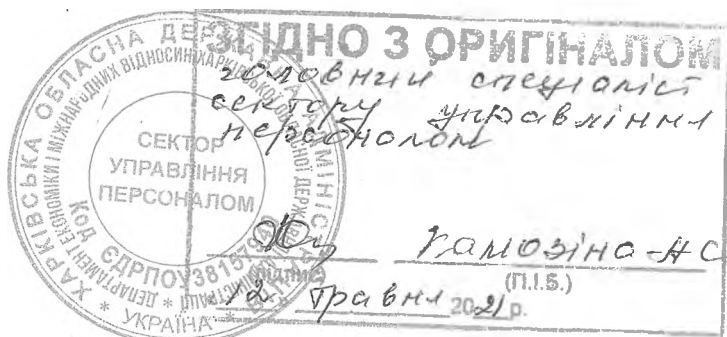 ЗГІДНО З ОРИГІНАЛОМ
головний спеціаліст
сектору управління
персоналом
(підпис)
(П.І.Б.)
12 травня 2021 р.
ХАРКІВСЬКА ОБЛАСНА ДЕРЖАВНА АДМІНІСТРАЦІЯ
УКРАЇНА
ДЕПАРТАМЕНТ ЕКОНОМІКИ І МІЖНАРОДНИХ ВІДНОСИН ХАРКІВСЬКОЇ ОБЛАСНОЇ ДЕРЖАВНОЇ АДМІНІСТРАЦІЇ
Код ЄДРПОУ
СЕКТОР
УПРАВЛІННЯ
ПЕРСОНАЛОМ